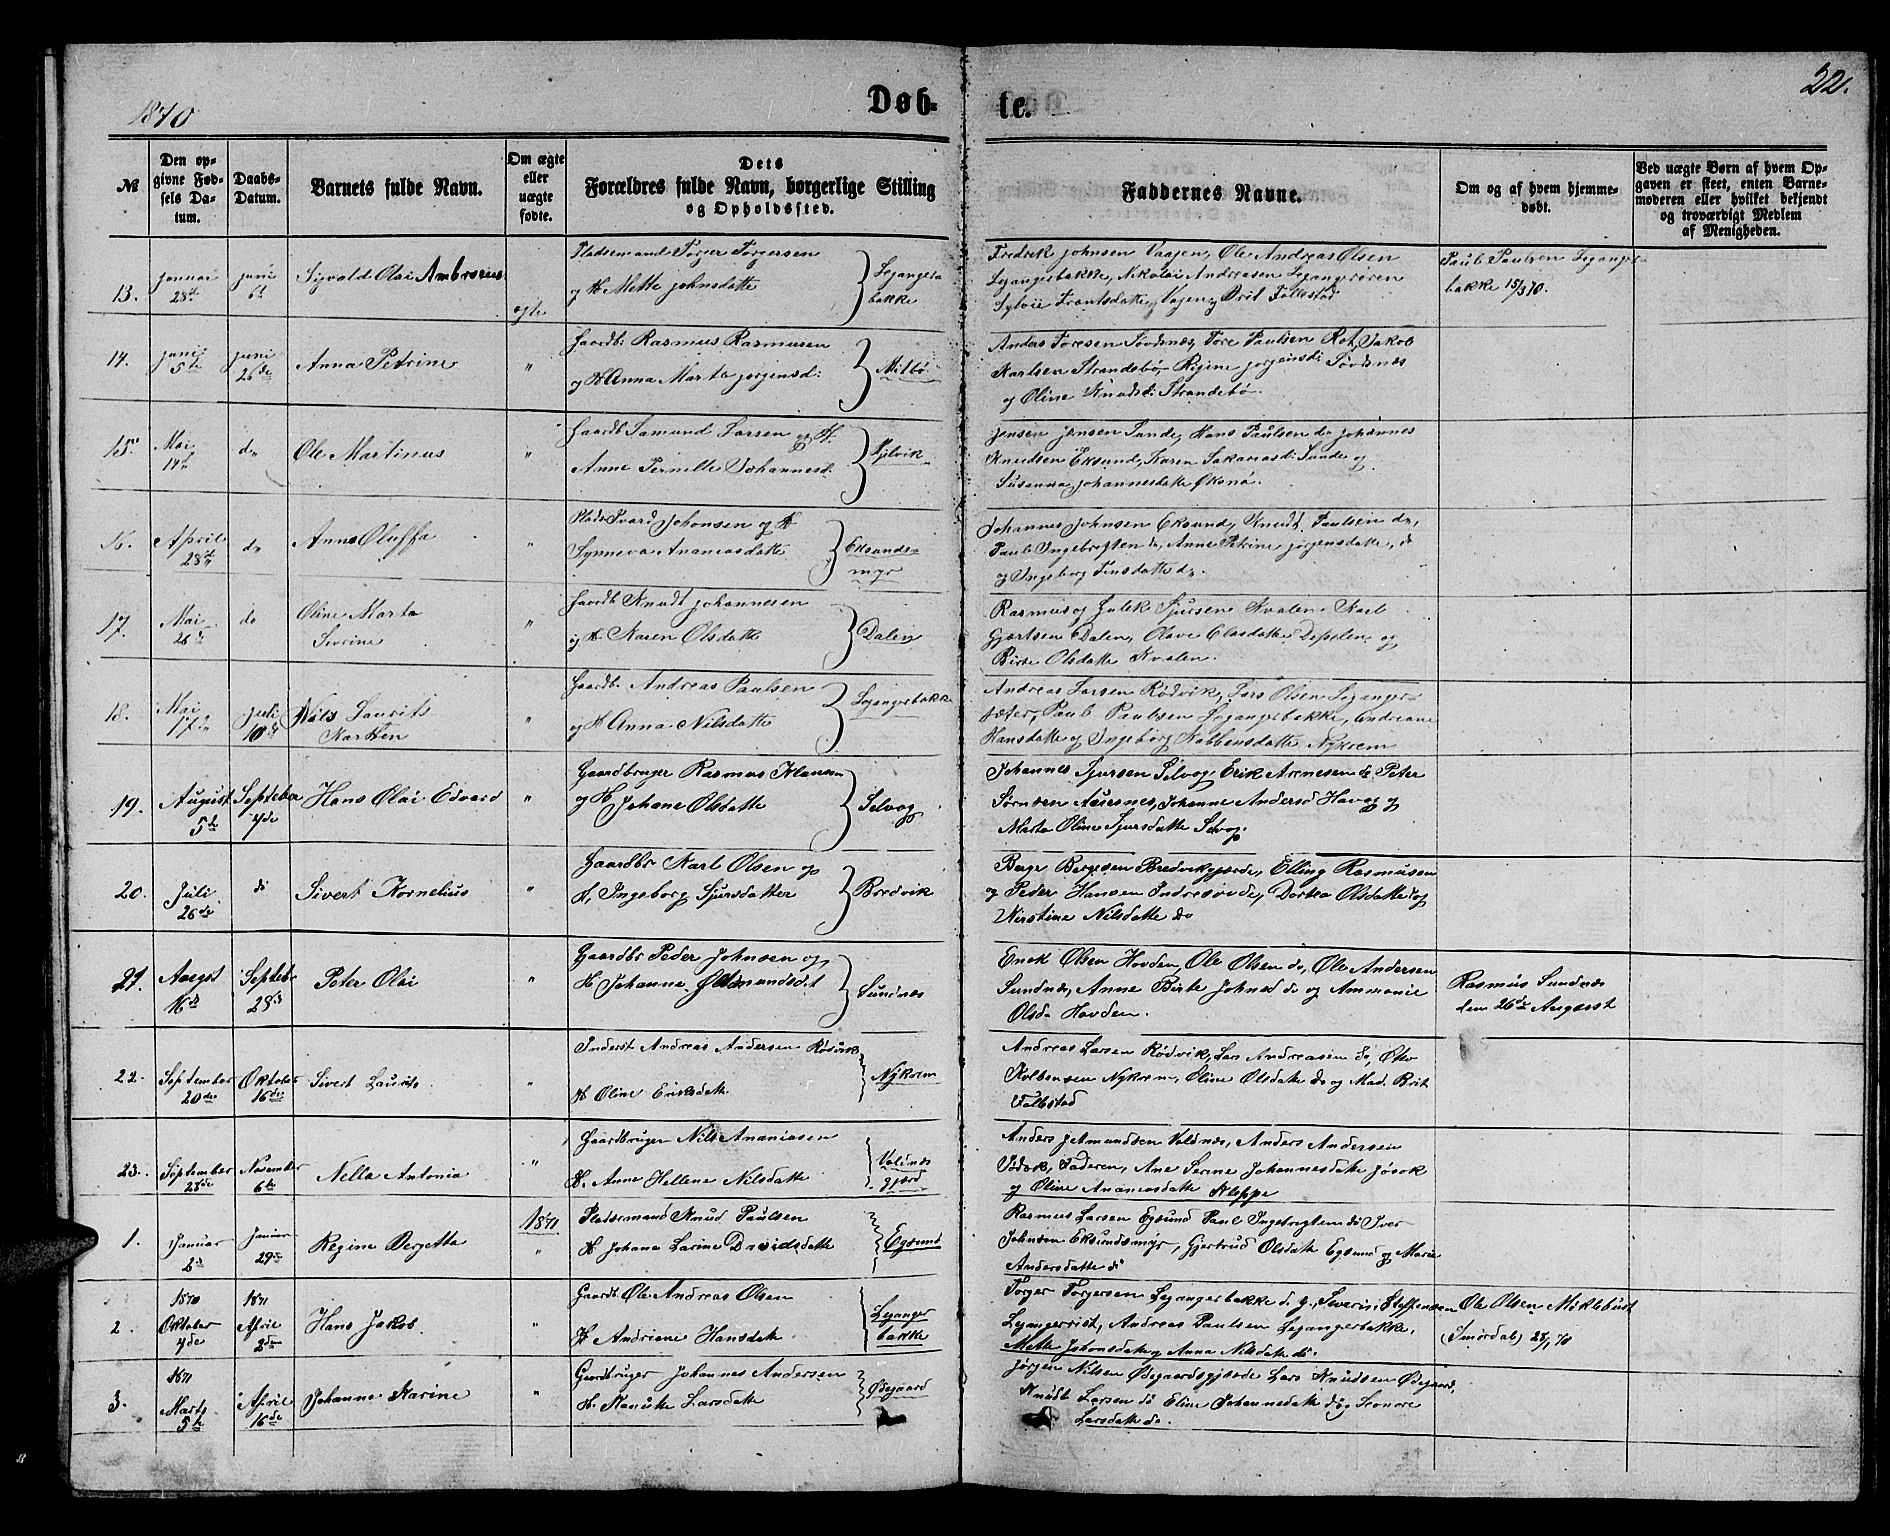 1870
Døb-
te.
22.
№
Den op-
givne Fød-
sels Da-
tum.
Daabs-
Datum.
Barnets fulde Navn.
Om ægte
eller
uægte
fødte.
Dets
Forældres fulde Navn, borgerlige Stilling
og Opholdssted.
Faddernes Navne.
Om og af hvem hjemme-
døbt.
Ved uægte Børn af hvem Op-
gaven er skeet, enten Barne-
moderen eller hvilket bekjendt
og troværdigt Medlem
af Menigheden.
13.
januar
28de
juni
6te
Sigvald Olai Ambrosius
egte
Pladsemand Torger Torgersen
og H. Mette johnsdatte
Leganger
bakke
Fredrik johnsen Vaagen, Ole Andreas Olsen
Legangerbakke, Nikolai Andreasen Legangerøren
Sylvie Frantsdatte, Vagen, Brit Folkestad
Paul Paulsen Leganger
bakke 15/3 70.
14.
juni
5te
juni
26de
Anna Petrine
"
Gaardb: Rasmus Rasmusen
og H Anna Marta jorgensd:
Mitbø
Anders Toresen Søvdsnæs, Tore Paulsen Rot, Jakob
Karlsen Strandebø, Regine jorgensd: Søvdsnæs
og Oline Knudsd: Strandebø.
15.
Mai
14de
do
Ole Martinus
"
Gaardb Samund Larsen og H.
Anne Pernille Johannesd.
Kjilvik
jensen jensen Sande, Hans Paulsen do johannes
Knudsen Eksund, Karen Sakariasd: Sunde og
Susanna johannesdatte
16.
April
28de
do
Anne Oluffa
"
Plads Ivard Johonsen og H
Synneva Ananiasdatte
Eksunds-
myr
Johannes Johnsen Eksund, Knudt Paulsen do,
Paul Ingebrigtsen do, Anne Petrine jørgensdatte, do
og Ingeborg Finsdatte do.
17.
Mai
26de
do
Oline Marta
Sivrine
"
Gaardb Knudt johannesen
og H Karen Olsdatte
Dalen
Rasmus og Sjursen Kvalen Karl
Gjertsen Dalen, Olave Olasdatte og
Birte Olsdatte Kvalen.
18.
Mai
17de
juli
10de
Nils Laurits
Karsten
"
Gaardb. Andreas Paulsen
og H Anna Nilsdatte
Legangerbakke
Andreas Larsen Rødvik, Lars Olsen Leganger-
sæter, Paul Paulsen Legangerbakke, Andreane
Hansdatte og Ingeborg Kolbensdatte Nykrem
19.
August
5te
September
4de
Hans Olai Edvard
"
Gaardbruger Rasmus Klausen
og H Johane Olsdatte
Selvog
Johannes Sjursen Selvog Erik Arnesen do Peter
Sørnsen Aasesnes, Johanne Andersd Havog og
Marta Oline Sjursdatte Selvog.
20.
Juli
26de
do
Sivert Kornelius
"
Gaardbr Karl Olsen og
H, Ingeborg Sjursdatter
Bredvik
Berge Bergesen Bredvikgjærde, Elling Rasmusen
og Peder Hansen do, Dortea Olsdatte do og
Kirstine Nilsdatte do
21.
August
16de
Septebr
28de
Peter Olai
"
Gaardbr Peder Johnsen og
H Johanne
Sundnæs
Enok Olsen Hovden, Ole Olsen do, Ole Andersen
Sundnæs, Anne Birte Johnsd do og
Olsda Hovden.
Rasmus Sundnæs
den 26de August
22.
September
20de
Oktober
16de
Sivert Laurits
"
Inderst Andreas Andersen Rødvik
H Oline Eriksdatte
Nykrem
Andreas Larsen Rødvik, Lars Andreasen do, Otto
Kolbensen Nykrem, Oline Olsdatte do og Mad. Brit
Folkstad
23.
September
28de
November
6te
Nella Antonia
"
Gaardbruger Nils Ananiasen
H. Anne Hellene Nilsdatte
Voldnæs
gjerd
Anders Amundsen Voldnæs, Anders Andersen
Jøsok, Faderen, Ane Serine Johannesdatte Jøsok
og Oline Ananiasdatte Kleppe
1871
1.
Januar
2de
Januar
29de
Regine Bergetta
"
Pladsemand Knud Paulsen
H Johane Larine Davidsdatte
Egsund
Rasmus Larsen Egsund Paul Ingebrigtsen do Iver
Johnsen Eksundsmyr, Gjertrud Olsdatte Egsund og Marie
Andersdatte do
2.
1870
Oktober
4de
1871
April
2den
Hans Jakob.
"
Gaardb Ole Andreas Olsen
H Andriane Hansdatte
Leganger
bakke
Torger Torgersen Legangerbakke do Severin Steffensen
Legangerrist, Andreas Paulsen Legangerbakke,
Mette Johonsdatte og Anna Nilsdatte do.
Ole Olsen Myklebust
(Smørdal)
3.
1871
Marts
5te
April
16de
Johanne Karine
"
Gaardbruger Johannes Andersen
H. Larsdatte
Ødegaard
Jørgen Nilsen Ødegaardsgjerde Lars Knudsen Ødegaard,
Knudt Larsen do Eline Johannesdatte do og Leonore
Larsdatte do.